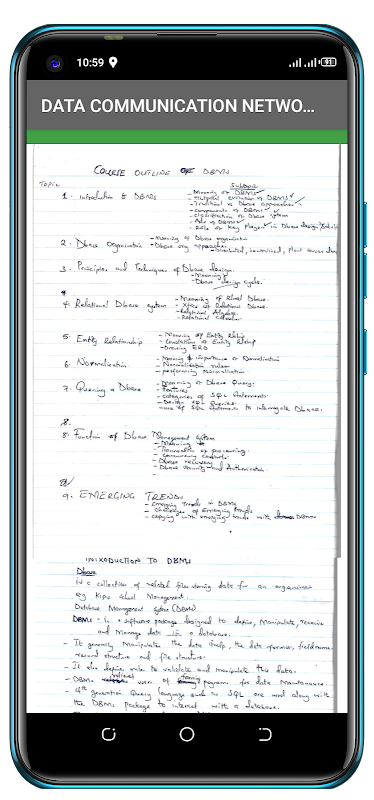 10:59
91
DATA COMMUNICATION NETWO...
COURSE OUTLINE OF DBMS
TOPIC
Subtopic
1. Introduction to DBMS
- Meaning of DBMS
- Historical Evolution of DBMS
- Traditional vs Dbase approaches
- Components of DBMS
- Classification of Dbase systems
- Role of Key Players in Dbase design
2. Dbase Organisation
- Meaning of Dbase organisation
- Dbase org approaches
3. Principles and Techniques of Dbase design
- Meaning
- Dbase design cycle.
4. Relational Dbase system
- Meaning of Rlnal Dbase.
- Relational Algebra
- Relational Calculus
5. Entity Relationship
- Meaning of Entity Rlship
- Drawing ERD
6. Normalisation
- Meaning & importance of Normalisation
- Normalisation rules
- performing Normalisation
7. Querying a Dbase
- Meaning of Dbase Query.
- Features
- categories of SQL statements
- Design SQL Queries
- use of SQL statements to interrogate Dbase.
8.
8. Function of Dbase Management System
- Meaning
- Transaction processing
- Concurrency controls
- Dbase recovery
- Dbase security and Authorisation
9. EMERGING TRENDS
- Emerging Trends in DBMS
- Challenges of Emerging trends
- copying with emerging trends with DBMS
INTRODUCTION TO DBMS
Dbase
is a collection of related files storing data for an organisation
eg Kips school Management.
Database Management System (DBMS)
DBMS - is a software package designed to define, Manipulate, receive
and Manage data in a database.
- It generally Manipulates the data itself, the data format, field name
record structure and file structure.
- It also define rules to validate and manipulate this data.
- DBMS users of programs for data Maintenance.
- 4th generation Query language such as SQL are used along with
the DBMS package to interact with a database.